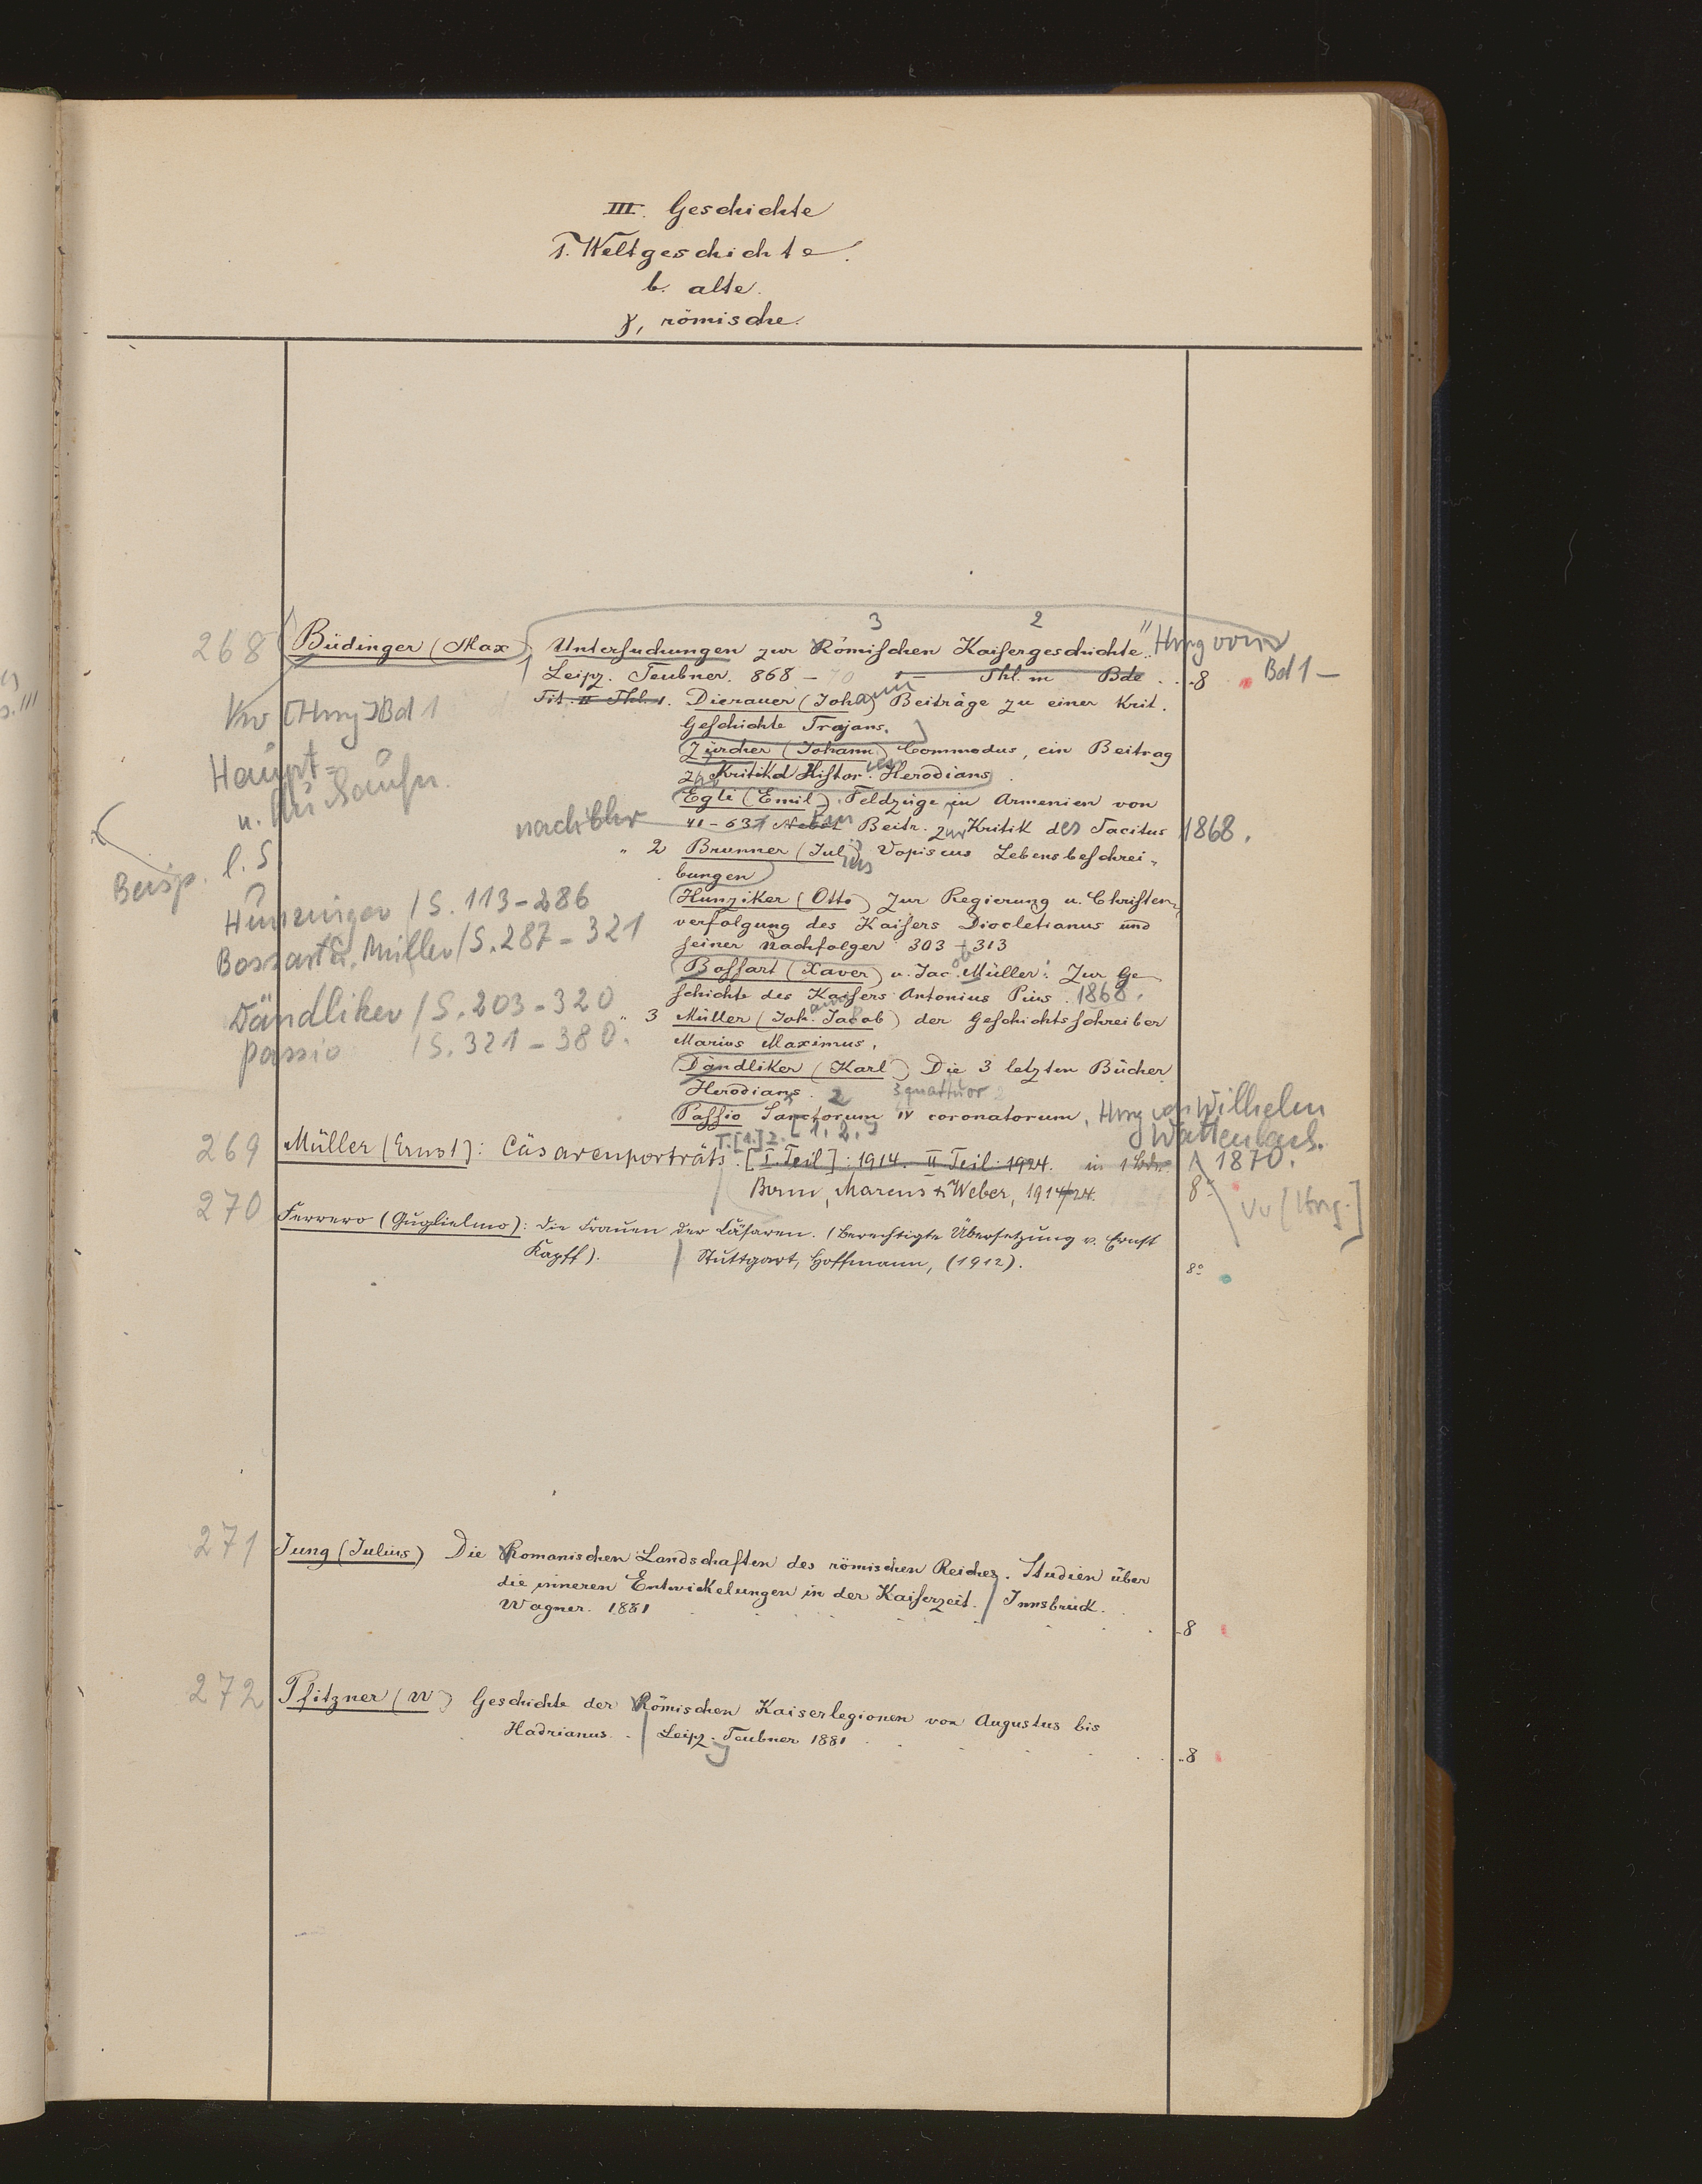 III. Geschichte
1. Weltgeschichte.
b. alte.
γ, römische.
3 2
268 Büdinger (Max) Untersuchungen zur Römischen Kaisergeschichte. Hrsg von
Leipz. Teubner. 868 - 70 Thl. in Bde . . 8 Bd 1 —
Tit. II Thl. 1. Dierauer (Johann) Beiträge zu einer Krit.
Vw [Hrsg] Bd 1
Geschichte Trajans.
Zürcher (Johann) Commodus, ein Beitrag
Haupt-
zur Kritik d Histor. Herodians
u.
Egli (Emil) Feldzüge in Armenien von
nach Chr 41 - 63 Ein Beitr. zur Kritik des Tacitus 1868.
l. S
" 2 Brunner (Julius) Vopiscus Lebensbeschrei-
Beisp.
bungen
Hunziker / S. 113 - 286
Hunziker (Otto) Zur Regierung u. Christen-
verfolgung des Kaisers Diocletianus und
Bossart u. Müller / S. 287 - 321
seiner Nachfolger 303 - 313
Bossart (Xaver) u. Jac. Müller: Zur Ge-
schichte des Kaisers Antonius Pius. 1868.
Dändliker / S. 203 - 320
" 3 Müller (Joh. Jacob) der Geschichtsschreiber
Passio / S. 321 - 380.
Marius Maximus.
Dändliker (Karl) Die 3 letzten Bücher
Herodians. 2 3 quattuor 2
Passio Sanctorum IV coronatorum. Hrsg von Wilhelm
Wattenbach.
1870.
T. [1.] 2. [1, 2,]
269 Müller (Ernst): Cäsarenporträts. [I. Teil]: 1914. II Teil: 1924. in 1 Bde.
Bonn, Marcus & Weber, 1914/24. 8°
Vw [Hrsg.]
270 Ferrero (Guglielmo): Die Frauen der Cäsaren. (Berechtigte Übersetzung v. Ernst
Kapff). Stuttgart, Hoffmann, (1912). 8°
271 Jung (Julius) Die Romanischen Landschaften des römischen Reiches. Studien über
die inneren Entwickelungen in der Kaiserzeit. / Innsbruck.
Wagner. 1881 . 8
272 Pfitzner (W) Geschichte der Römischen Kaiserlegionen von Augustus bis
Hadrianus. | Leipz. Teubner 1881 . . 8